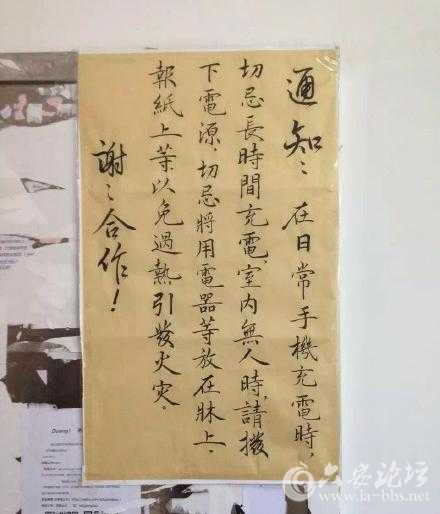 通知：在日常手機充電時，
切忌長時間充電，室内無人時，請撥
下電源，切忌將用電器等放在牀上、
報紙上等以免過熱引發火灾。
謝：合作！
六安论坛
www.la-bbs.net